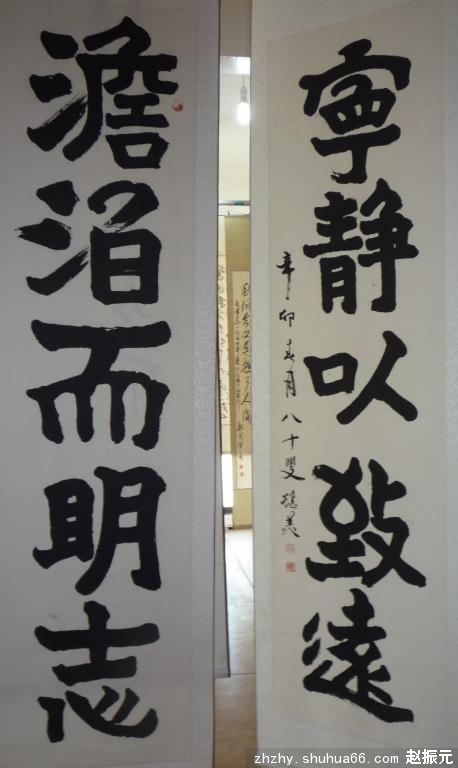 澹泊而明志
寧静以致遠
辛卯春月八十叟
zhzhy.shuhua66.com 赵振元